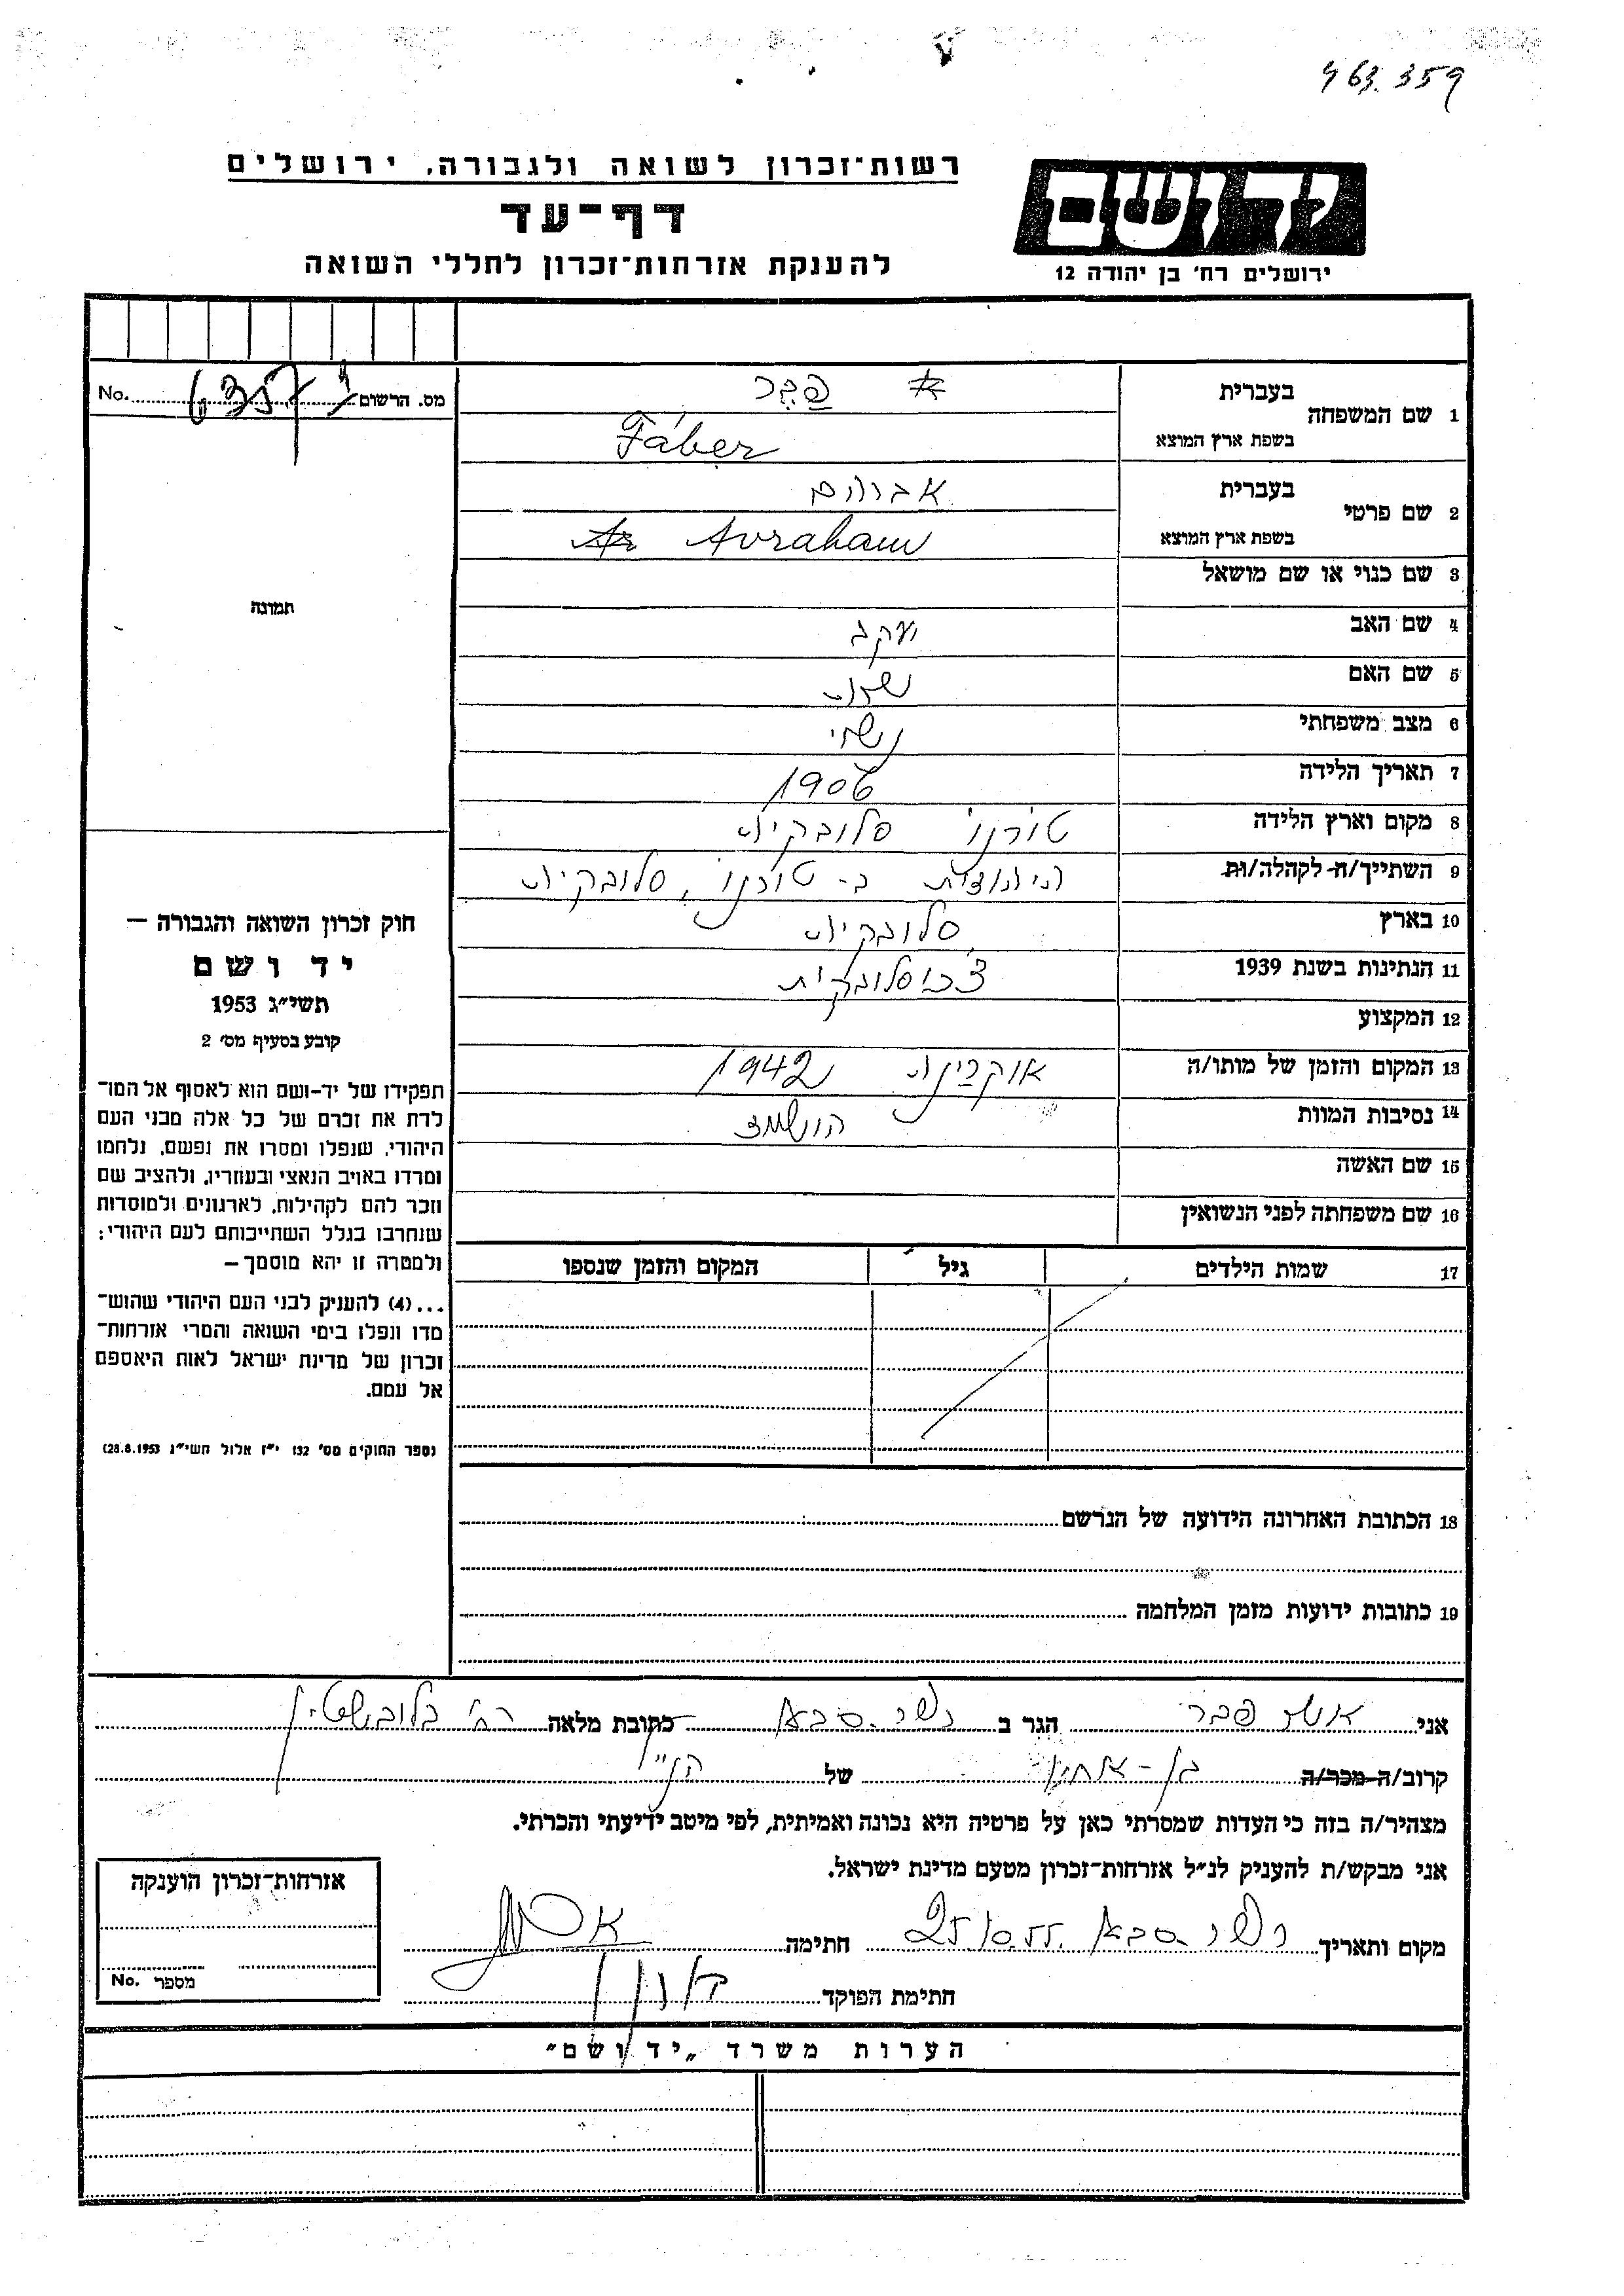 463.359
רשות־זכרון לשואה ולגבורה, ירושלים
דף־עד
להענקת אזרחות־זכרון לחללי השואה
יד ושם
ירושלים רח׳ בן יהודה 12
מס. הרשום No.
תמונה
1 שם המשפחה בעברית פבר
בשפת ארץ המוצא Fáber
2 שם פרטי בעברית אברהם
בשפת ארץ המוצא Avraham
3 שם כנוי או שם מושאל
4 שם האב יעקב
5 שם האם שרה
6 מצב משפחתי נשוי
7 תאריך הלידה 1906
8 מקום וארץ הלידה טורנו סלובקיה
9 השתייך/ה לקהלה/ות היהודית ב- טורנו, סלובקיה
10 בארץ סלובקיה
11 הנתינות בשנת 1939 צכוסלובקית
12 המקצוע
13 המקום והזמן של מותו/ה אוקרינה 1942
14 נסיבות המוות הושמד
15 שם האשה
16 שם משפחתה לפני הנשואין
17 שמות הילדים גיל המקום והזמן שנספו
18 הכתובת האחרונה הידועה של הנרשם
19 כתובות ידועות מזמן המלחמה
חוק זכרון השואה והגבורה —
יד ושם
תשי״ג 1953
קובע בסעיף מס׳ 2
תפקידו של יד-ושם הוא לאסוף אל המו־
לדת את זכרם של כל אלה מבני העם
היהודי, שנפלו ומסרו את נפשם, נלחמו
ומרדו באויב הנאצי ובעוזריו, ולהציב שם
וזכר להם לקהילות, לארגונים ולמוסדות
שנחרבו בגלל השתייכותם לעם היהודי;
ולמטרה זו יהא מוסמך —
...(4) להעניק לבני העם היהודי שהוש־
מדו ונפלו בימי השואה והמרי אזרחות־
זכרון של מדינת ישראל לאות היאספם
אל עמם.
(ספר החוקים מס׳ 132 י״ז אלול תשי״ג 28.8.1953)
אני פבר הגר ב כפר-סבא כתובת מלאה רח׳
קרוב/ה מכר/ה בן-אחיו של הנ״ל
מצהיר/ה בזה כי העדות שמסרתי כאן על פרטיה היא נכונה ואמיתית, לפי מיטב ידיעתי והכרתי.
אני מבקש/ת להעניק לנ״ל אזרחות־זכרון מטעם מדינת ישראל.
מקום ותאריך כפר-סבא 25.10.55 חתימה
חתימת הפוקד
אזרחות־זכרון הוענקה
מספר No.
הערות משרד „יד ושם״